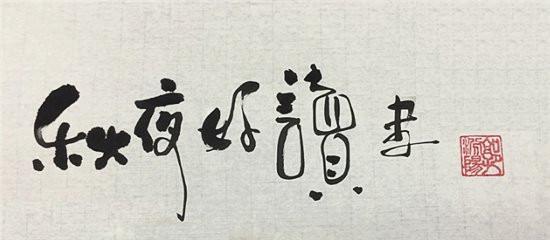 秋夜好讀書